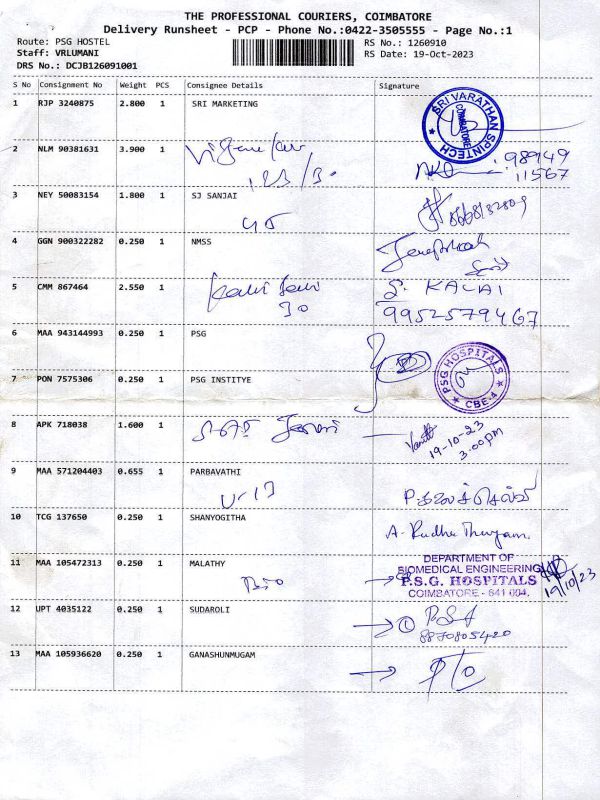 THE PROFESSIONAL COURIERS, COIMBATORE
Delivery Runsheet - PCP - Phone No.:0422-3505555 - Page No.:1
Route: PSG HOSTEL
RS No.: 1260910
Staff: VRLUMANI
RS Date: 19-Oct-2023
DRS No.: DCJB126091001
S No Consignment No Weight PCS Consignee Details Signature
1 RJP 3240875 2.800 1 SRI MARKETING
SRI VARATHAN SPINTECH COIMBATORE
2 NLM 90381631 3.900 1
98949
11567
3 NEY 50083154 1.800 1 SJ SANJAI
4 GGN 900322282 0.250 1 NMSS
5 CMM 867464 2.550 1 S. KALAI
30 9952579467
6 MAA 943144993 0.250 1 PSG
7 PON 7575306 0.250 1 PSG INSTITYE
PSG HOSPITALS CBE-4
8 APK 718038 1.600 1
19-10-23
3.00pm
9 MAA 571204403 0.655 1 PARBAVATHI
10 TCG 137650 0.250 1 SHANYOGITHA
11 MAA 105472313 0.250 1 MALATHY
DEPARTMENT OF
BIOMEDICAL ENGINEERING
P.S.G. HOSPITALS
COIMBATORE - 641 004.
19/10/23
12 UPT 4035122 0.250 1 SUDAROLI
8870805420
13 MAA 105936620 0.250 1 GANASHUNMUGAM